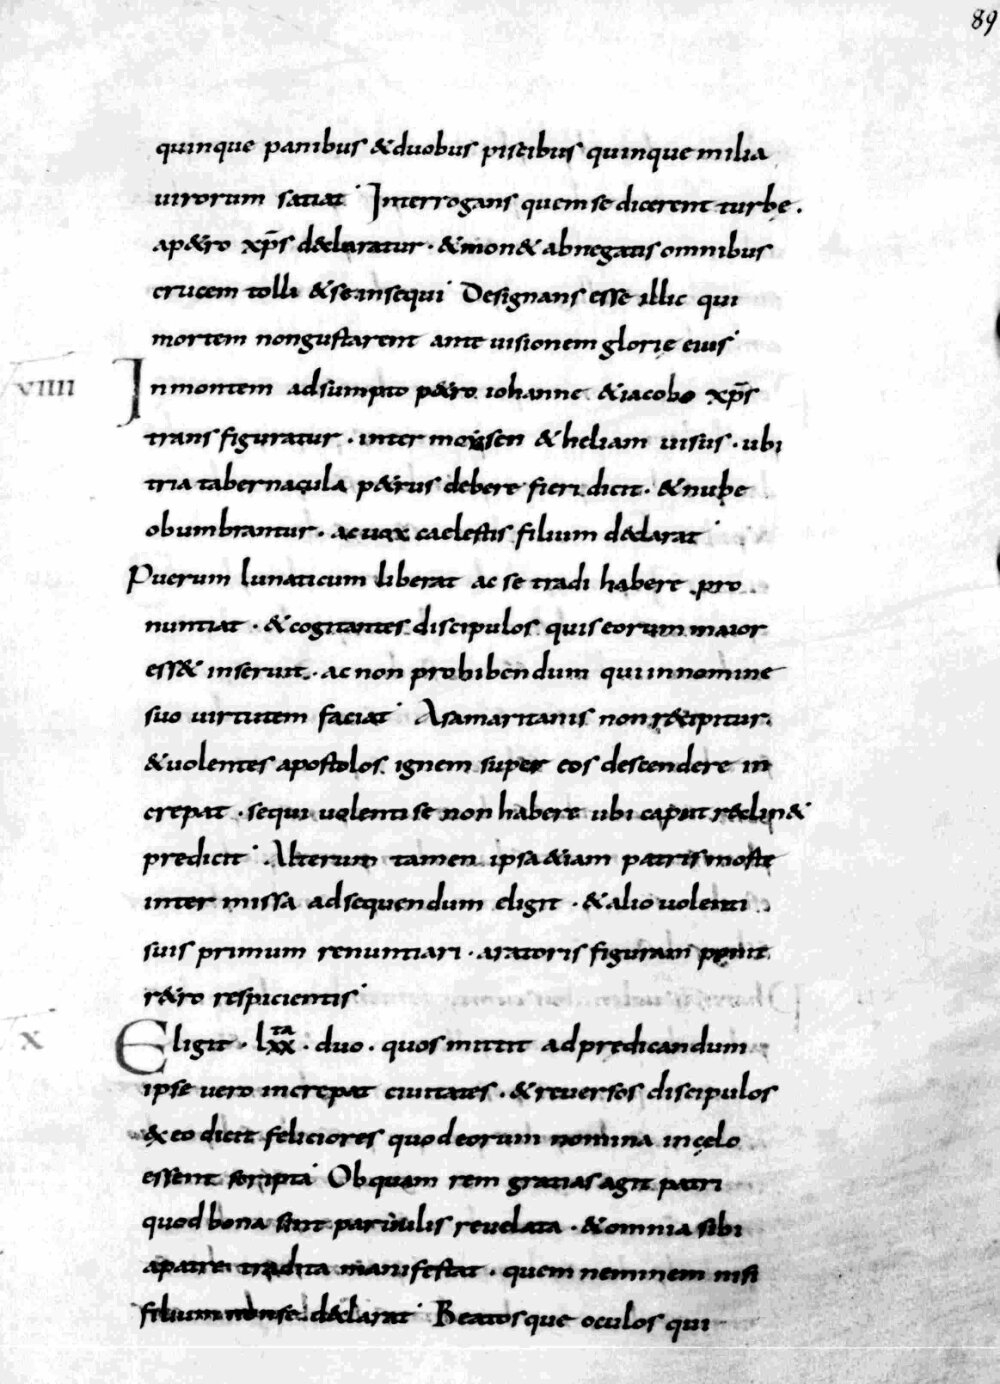 89
quinque panibus &duobus piscibus quinque milia
uirorum satiat· Interrogans quem se dicerent turbę.
ap&ro xp̄s d&laratur· &mon& abnegatis omnibus
crucem tolli &se insequi Designans esse illic qui
mortem nongustarent ante uisionem glorię eius·
viiii Inmontem adsumpto p&ro iohanne &iacobo xp̄s
trans figuratur· inter moysen &heliam uisus· ubi
tria tabernacula p&rus debere fieri dicit· &nube
obumbrantur· ac uox caelestis filium d&larat·
Puerum lunaticum liberat ac se tradi habere pro
nuntiat· &cogitantes discipulos quis eorum maior
ess& inseruit· ac non prohibendum qui innomine
suo uirtutem faciat· Asamaritanis non r&ipitur
&uolentes apostolos ignem super eos descendere in
crepat· sequi uolenti se non habere ubi caput r&lin&
predicit· Alterum tamen ipsa &iam patris moste
inter missa adsequendum eligit· &alio uolenti
suis primum renuntiari· aratoris figuram ponit
r&ro respicientis·
x Eligit· lxx ta· duo· quos mittit adpredicandum
ipse uero increpat ciuitates· &reuersos discipulos
&eo dicit feliciores quod eorum nomina incęlo
essent scripta· Ob quam rem gratias agit patri
quod bona sint paruulis reuelata· &omnia sibi
apatre tradita manifestat· quem neminem nisi
filium nosse d&larat· Beatosque oculos qui